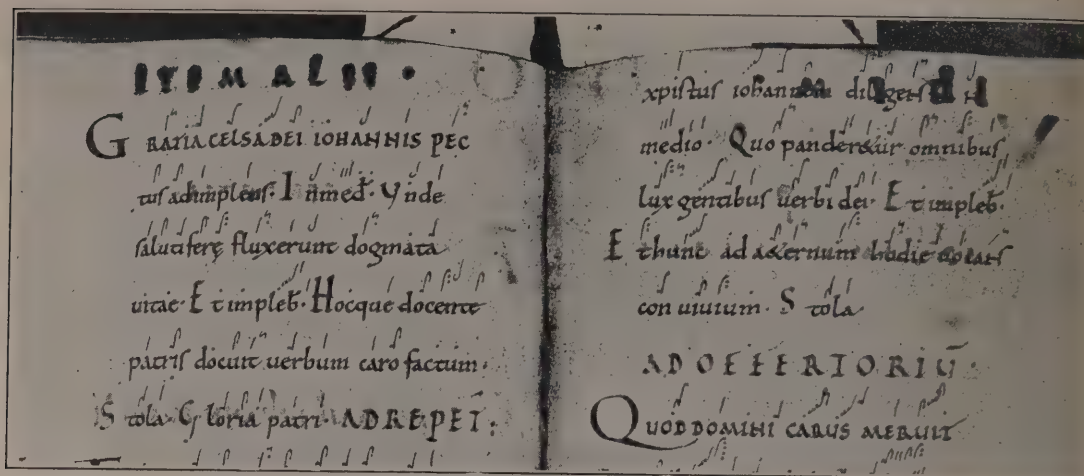 ITEM ALII ·
GRATIA CELSA DEI IOHANNIS PEC
tus adimplens · In med̄ · Vnde
salutiferę fluxerunt dogmata
uitae · Et impleb̄ · Hocque docente
patris docuit uerbum caro factum ·
Stola Gloria patri ADREPET̄ :
xpistus iohannem diligens in
medio · Quo panderetur omnibus
lux gentibus uerbi dei · Et impleb̄ ·
Et hunc ad aeternum hodie uocans
conuiuium · Stola
AD OFFERTORIŪ ·
QUOD DOMINI CARUS MERUIT